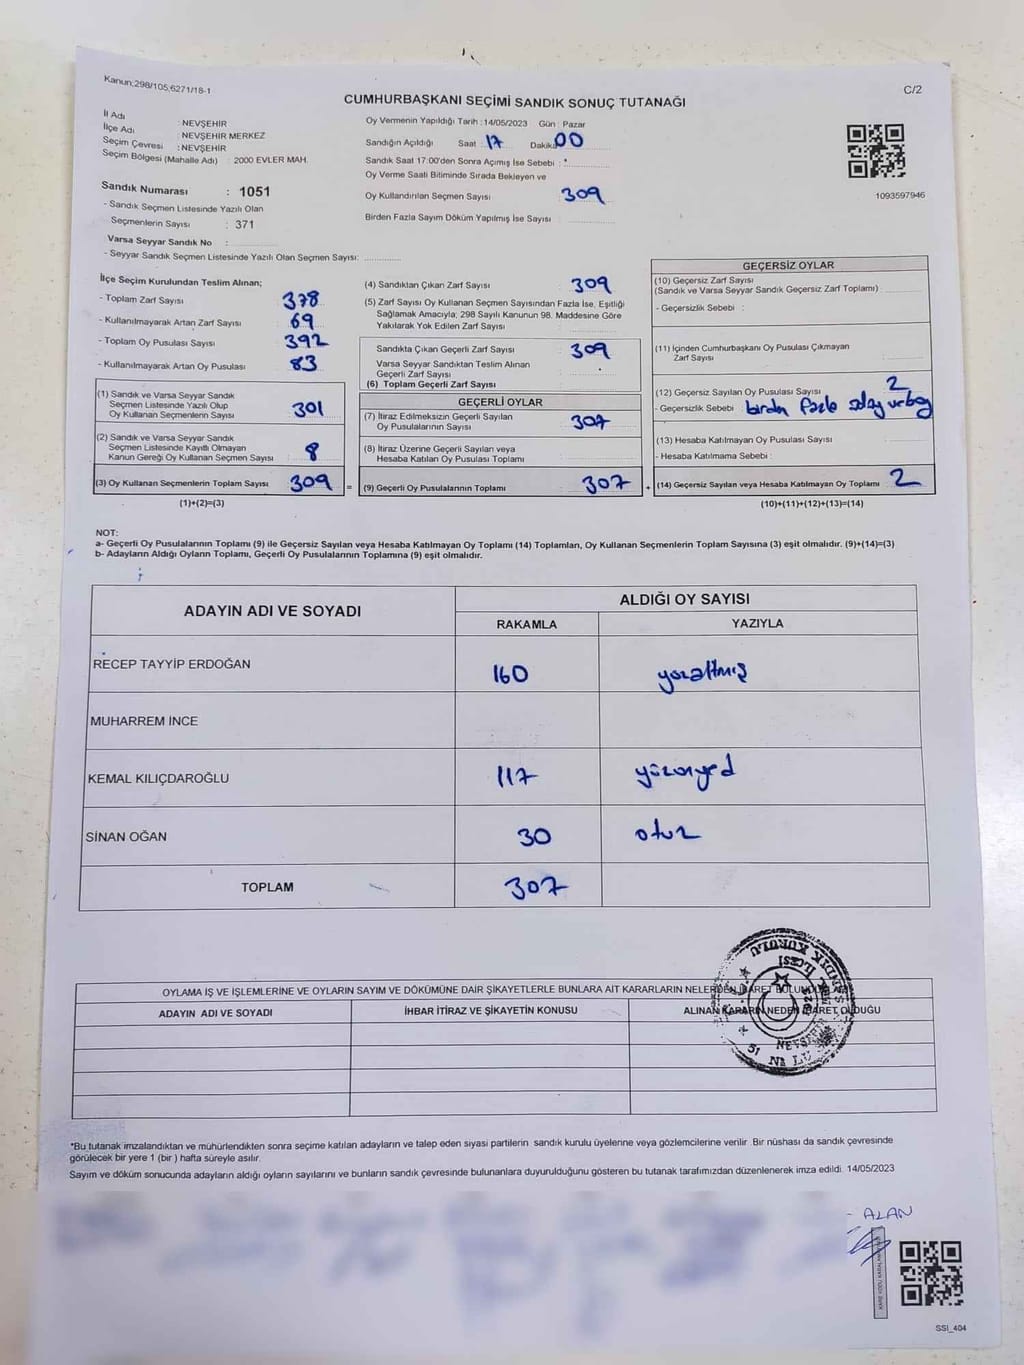 Kanun;298/105;6271/18-1
C/2
CUMHURBAŞKANI SEÇİMİ SANDIK SONUÇ TUTANAĞI
İl Adı : NEVŞEHİR
İlçe Adı : NEVŞEHİR MERKEZ
Seçim Çevresi : NEVŞEHİR
Seçim Bölgesi (Mahalle Adı) : 2000 EVLER MAH.
Sandık Numarası : 1051
- Sandık Seçmen Listesinde Yazılı Olan
Seçmenlerin Sayısı : 371
Varsa Seyyar Sandık No :
- Seyyar Sandık Seçmen Listesinde Yazılı Olan Seçmen Sayısı: ............
Oy Vermenin Yapıldığı Tarih : 14/05/2023 Gün : Pazar
Sandığın Açıldığı Saat : 17 Dakika 00
Sandık Saat 17:00'den Sonra Açımış İse Sebebi : *
Oy Verme Saati Bitiminde Sırada Bekleyen ve
Oy Kullandırılan Seçmen Sayısı 309
Birden Fazla Sayım Döküm Yapılmış İse Sayısı
1093597946
İlçe Seçim Kurulundan Teslim Alınan;
- Toplam Zarf Sayısı 378
- Kullanılmayarak Artan Zarf Sayısı 69
- Toplam Oy Pusulası Sayısı 392
- Kullanılmayarak Artan Oy Pusulası 83
(1) Sandık ve Varsa Seyyar Sandık
Seçmen Listesinde Yazılı Olup
Oy Kullanan Seçmenlerin Sayısı 301
(2) Sandık ve Varsa Seyyar Sandık
Seçmen Listesinde Kayıtlı Olmayan
Kanun Gereği Oy Kullanan Seçmen Sayısı 8
(3) Oy Kullanan Seçmenlerin Toplam Sayısı 309 =
(1)+(2)=(3)
(4) Sandıktan Çıkan Zarf Sayısı 309
(5) Zarf Sayısı Oy Kullanan Seçmen Sayısından Fazla İse, Eşitliği
Sağlamak Amacıyla; 298 Sayılı Kanunun 98. Maddesine Göre
Yakılarak Yok Edilen Zarf Sayısı
Sandıkta Çıkan Geçerli Zarf Sayısı 309
Varsa Seyyar Sandıktan Teslim Alınan
Geçerli Zarf Sayısı
(6) Toplam Geçerli Zarf Sayısı
GEÇERLİ OYLAR
(7) İtiraz Edilmeksizin Geçerli Sayılan
Oy Pusulalarının Sayısı 307
(8) İtiraz Üzerine Geçerli Sayılan veya
Hesaba Katılan Oy Pusulası Toplamı
(9) Geçerli Oy Pusulalarının Toplamı 307 +
GEÇERSİZ OYLAR
(10) Geçersiz Zarf Sayısı
(Sandık ve Varsa Seyyar Sandık Geçersiz Zarf Toplamı)
- Geçersizlik Sebebi :
(11) İçinden Cumhurbaşkanı Oy Pusulası Çıkmayan
Zarf Sayısı
(12) Geçersiz Sayılan Oy Pusulası Sayısı 2
- Geçersizlik Sebebi birden fazla aday
(13) Hesaba Katılmayan Oy Pusulası Sayısı
- Hesaba Katılmama Sebebi :
(14) Geçersiz Sayılan veya Hesaba Katılmayan Oy Toplamı 2
(10)+(11)+(12)+(13)=(14)
NOT:
a- Geçerli Oy Pusulalarının Toplamı (9) ile Geçersiz Sayılan veya Hesaba Katılmayan Oy Toplamı (14) Toplamları, Oy Kullanan Seçmenlerin Toplam Sayısına (3) eşit olmalıdır. (9)+(14)=(3)
b- Adayların Aldığı Oyların Toplamı, Geçerli Oy Pusulalarının Toplamına (9) eşit olmalıdır.
ADAYIN ADI VE SOYADI ALDIĞI OY SAYISI
RAKAMLA YAZIYLA
RECEP TAYYİP ERDOĞAN 160 yüzaltmış
MUHARREM İNCE
KEMAL KILIÇDAROĞLU 117 yüzonyed
SİNAN OĞAN 30 otuz
TOPLAM 307
OYLAMA İŞ VE İŞLEMLERİNE VE OYLARIN SAYIM VE DÖKÜMÜNE DAİR ŞİKAYETLERLE BUNLARA AİT KARARLARIN NELERDEN İBARET BULUNDUĞU
ADAYIN ADI VE SOYADI İHBAR İTİRAZ VE ŞİKAYETİN KONUSU ALINAN KARARIN NEDEN İBARET OLDUĞU
*Bu tutanak imzalandıktan ve mühürlendikten sonra seçime katılan adayların ve talep eden siyasi partilerin sandık kurulu üyelerine veya gözlemcilerine verilir. Bir nüshası da sandık çevresinde
görülecek bir yere 1 (bir ) hafta süreyle asılır.
Sayım ve döküm sonucunda adayların aldığı oyların sayılarını ve bunların sandık çevresinde bulunanlara duyurulduğunu gösteren bu tutanak tarafımızdan düzenlenerek imza edildi. 14/05/2023
ALAN
SSI_404